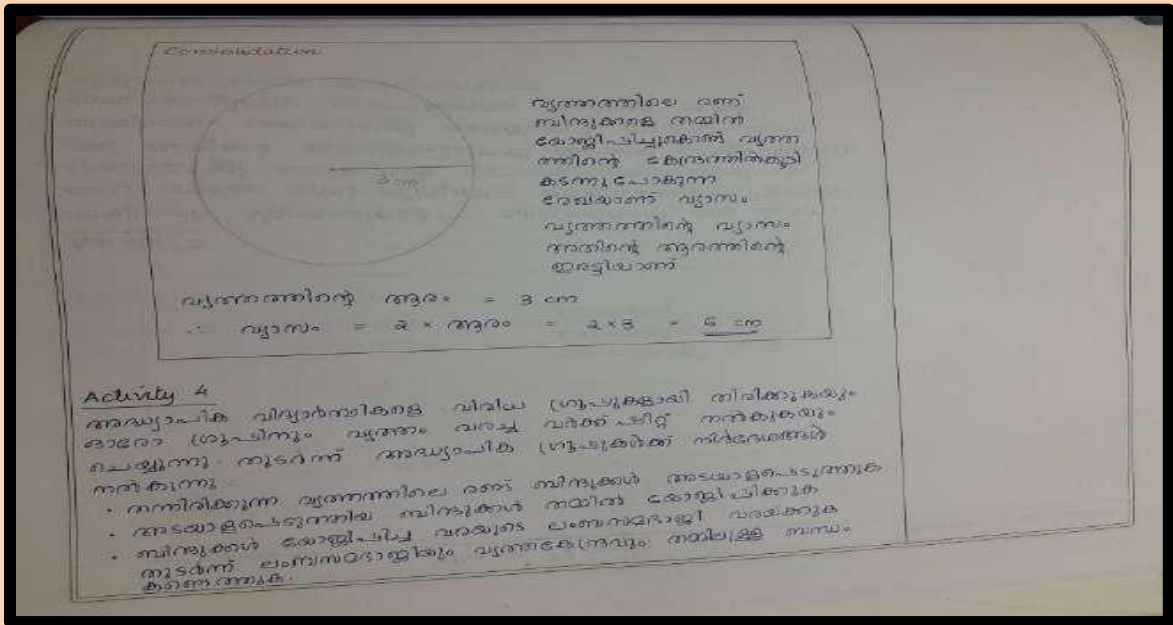 Consolidation
വൃത്തത്തിലെ രണ്ട്
ബിന്ദുക്കളെ തമ്മിൽ
യോജിപ്പിച്ചുകൊണ്ട് വൃത്ത
ത്തിന്റെ കേന്ദ്രത്തിൽകൂടി
കടന്നുപോകുന്ന
രേഖയാണ് വ്യാസം.
വൃത്തത്തിന്റെ വ്യാസം
അതിന്റെ ആരത്തിന്റെ
ഇരട്ടിയാണ്
3 cm
വൃത്തത്തിന്റെ ആരം = 3 cm
∴ വ്യാസം = 2 × ആരം = 2×3 = 6 cm
Activity 4
അദ്ധ്യാപിക വിദ്യാർത്ഥികളെ വിവിധ ഗ്രൂപ്പുകളായി തിരിക്കുകയും
ഓരോ ഗ്രൂപ്പിനും വൃത്തം വരച്ച വർക്ക് ഷീറ്റ് നൽകുകയും
ചെയ്യുന്നു. തുടർന്ന് അദ്ധ്യാപിക ഗ്രൂപ്പുകൾക്ക് നിർദേശങ്ങൾ
നൽകുന്നു
• തന്നിരിക്കുന്ന വൃത്തത്തിലെ രണ്ട് ബിന്ദുക്കൾ അടയാളപ്പെടുത്തുക
• അടയാളപ്പെടുത്തിയ ബിന്ദുക്കൾ തമ്മിൽ യോജിപ്പിക്കുക
• ബിന്ദുക്കൾ യോജിപ്പിച്ച വരയുടെ ലംബസമഭാജി വരയ്ക്കുക
തുടർന്ന് ലംബസമഭാജിയും വൃത്തകേന്ദ്രവും തമ്മിലുള്ള ബന്ധം
കണ്ടെത്തുക.